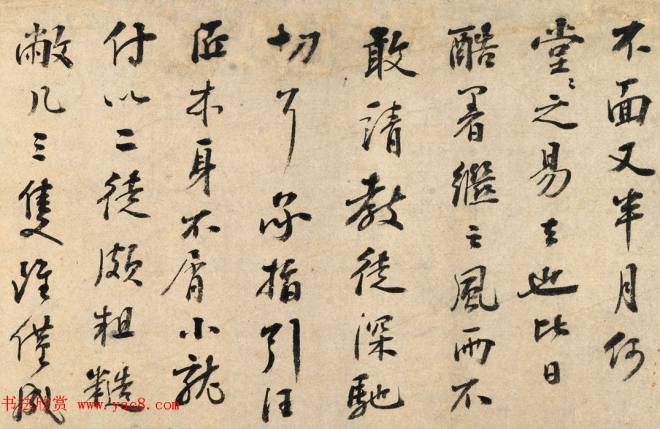 不面又半月何
堂堂之易去也比日
酷暑继之风雨不
敢请教徒深驰
切耳承指引汪
匠本身不屑小就
付以二徒颇粗糙
敝几三隻虽仅成
书法欣赏 www.yac8.com